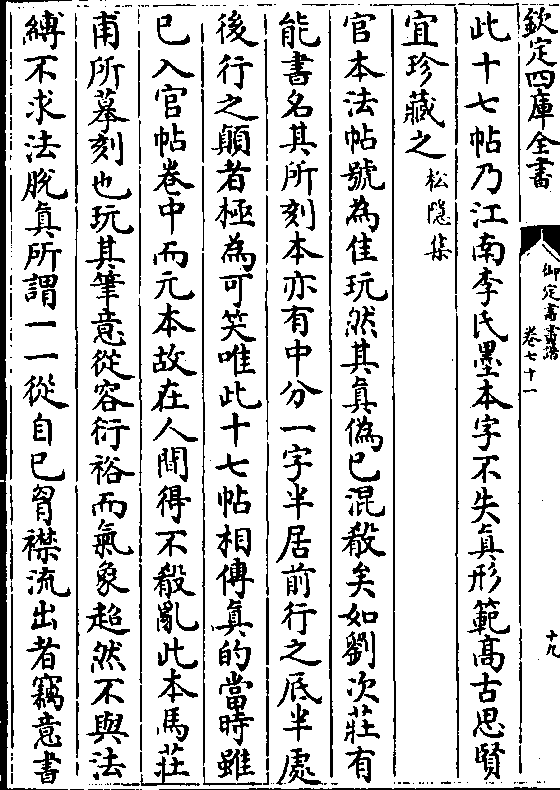 欽定四庫全書
御定書畫譜
卷七十一
十九
此十七帖乃江南李氏墨本字不失真形範高古思賢
宜珍藏之松隱集
官本法帖號為佳玩然其真偽已混殽矣如劉次莊有
能書名其所刻本亦有中分一字半居前行之底半處
後行之顛者極為可笑唯此十七帖相傳真的當時雖
已入官帖卷中而元本故在人間得不殽亂此本馬莊
甫所摹刻也玩其筆意從容衍裕而氣象超然不與法
縛不求法脫真所謂一一從自己胷襟流出者竊意書